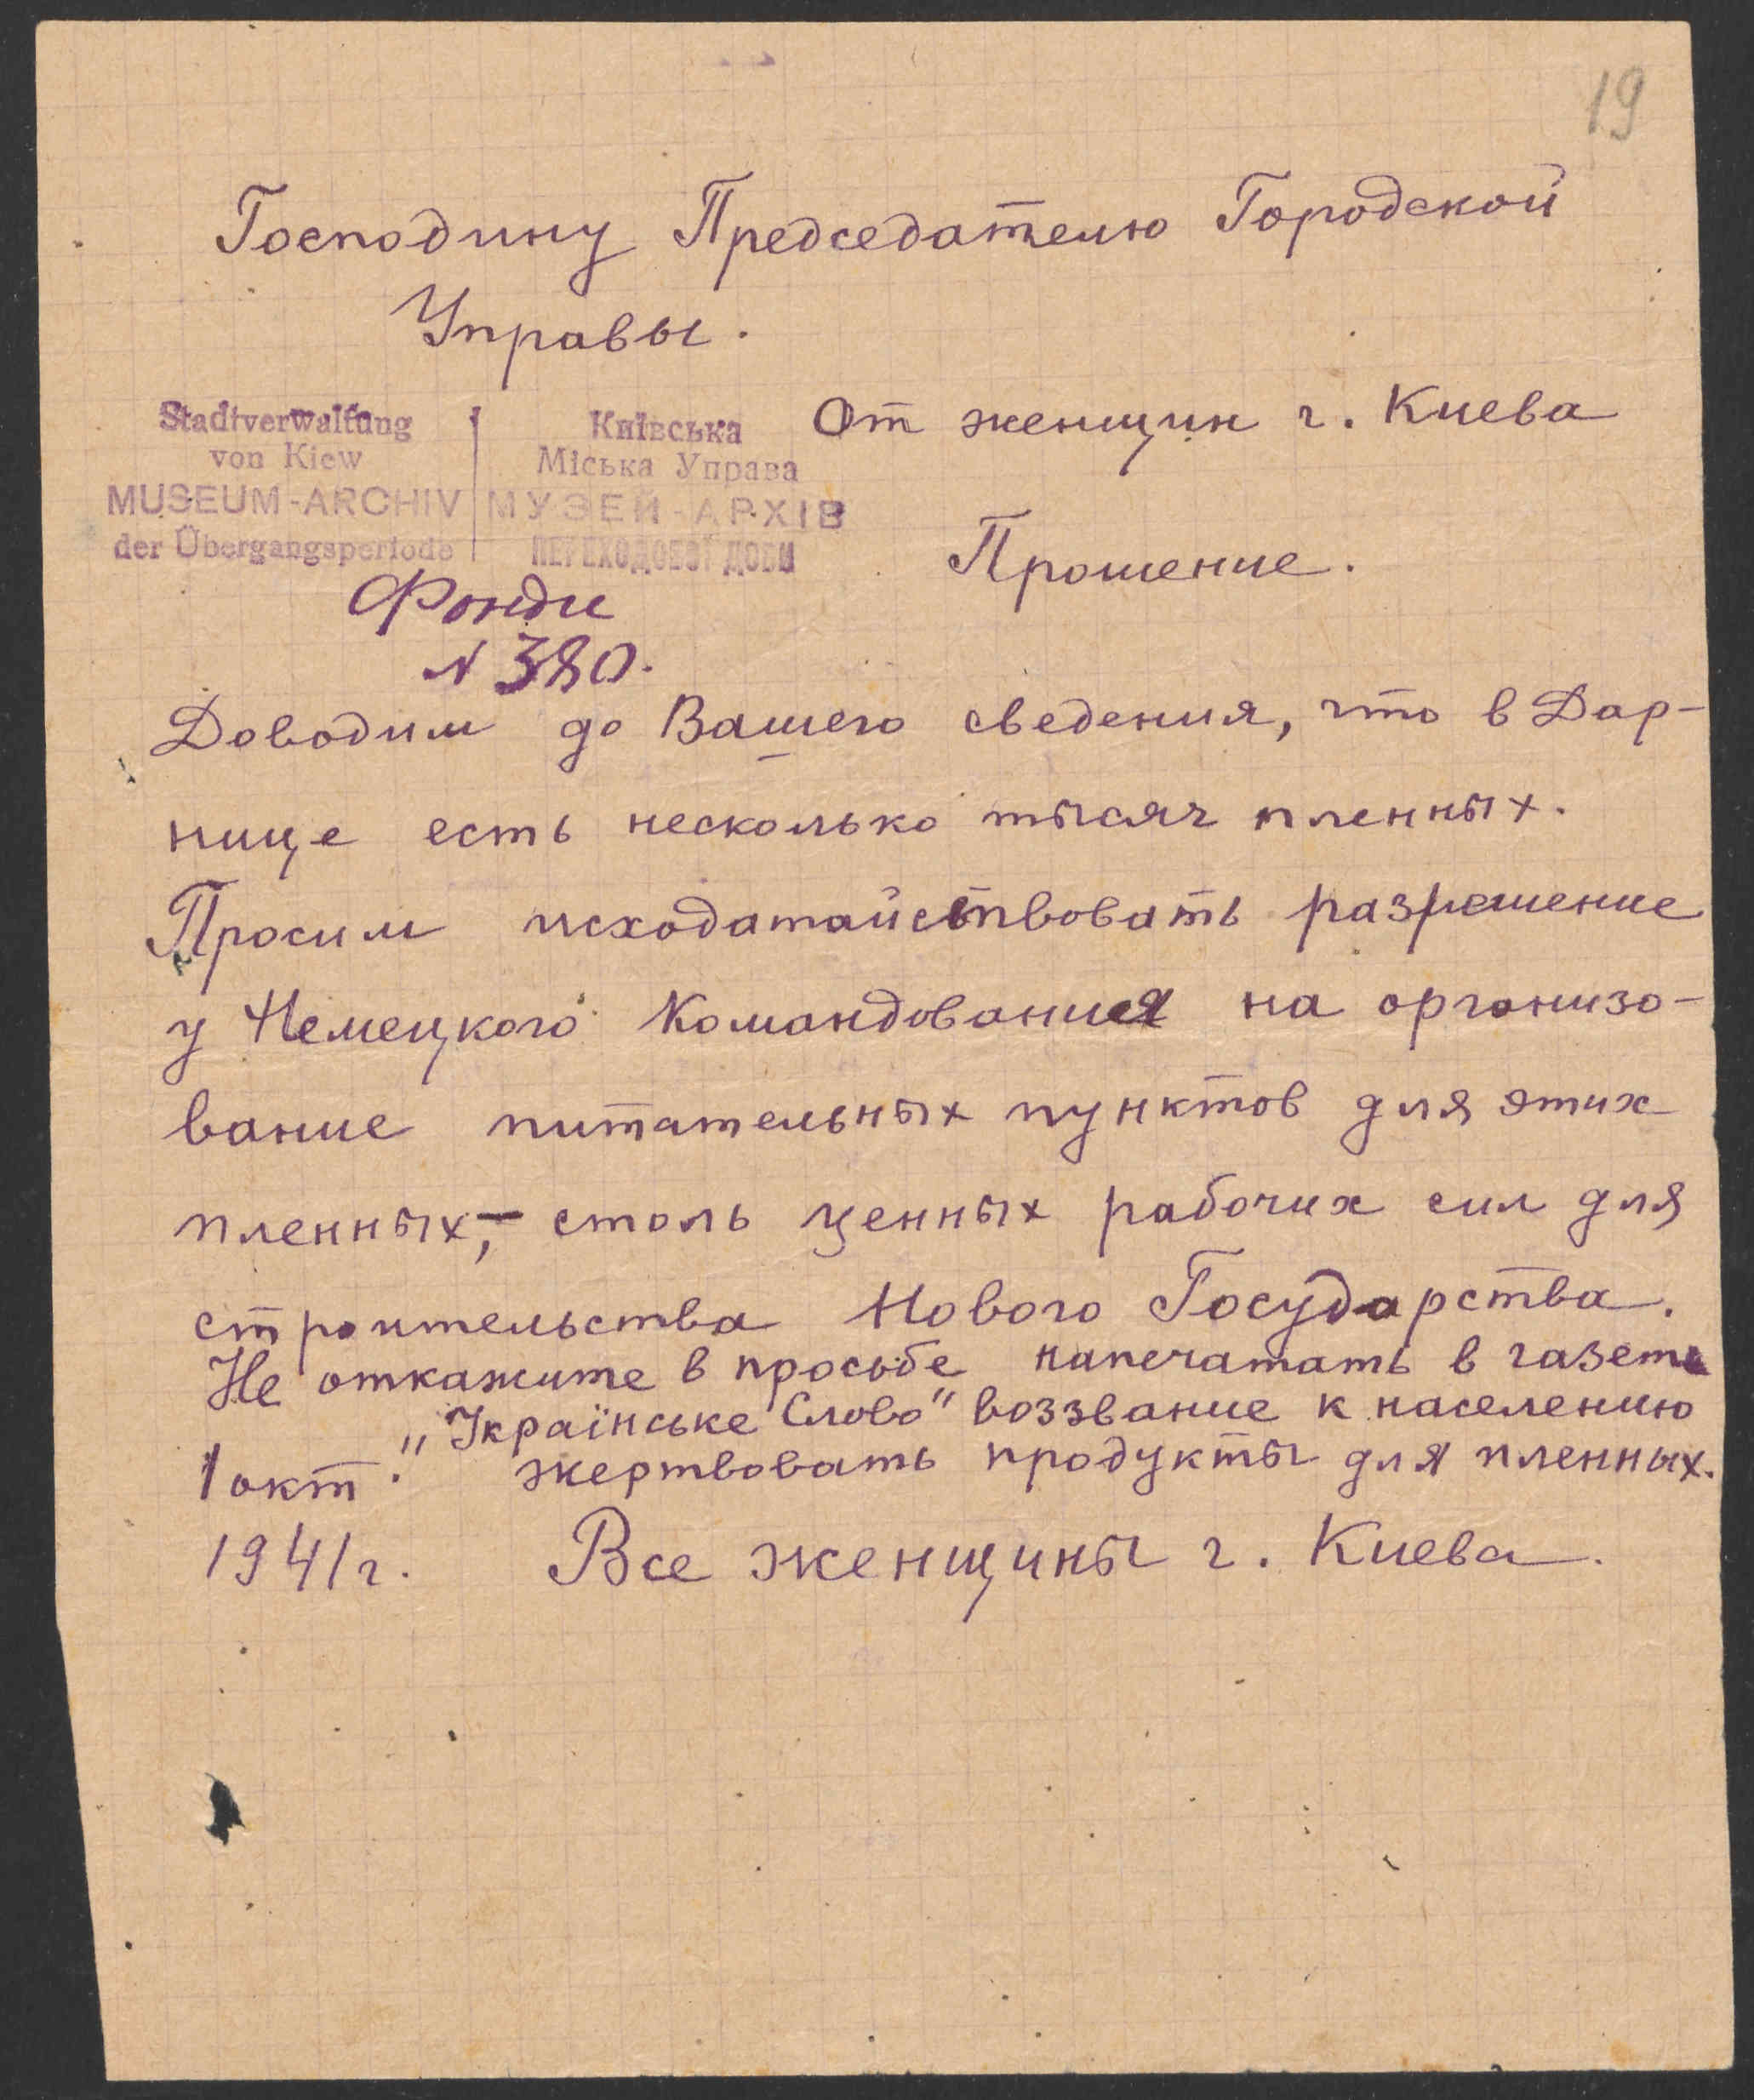 19
Господину Председателю Городской
Управы.
Stadtverwaltung
von Kiew
MUSEUM-ARCHIV
der Übergangsperiode
Київська
Міська Управа
МУЗЕЙ-АРХІВ
ПЕРЕХОДОВОЇ ДОБИ
От женщин г. Киева
Прошение.
Фонди
N 380.
Доводим до Вашего сведения, что в Дар-
нице есть несколько тысяч пленных.
Просим исходатайствовать разрешение
у Немецкого Командования на организо-
вание питательных пунктов для этих
пленных,- столь ценных рабочих сил для
строительства Нового Государства.
Не откажите в просьбе напечатать в газете
"Українське Слово" воззвание к населению
жертвовать продукты для пленных.
1 окт.
1941 г.
Все женщины г. Киева.